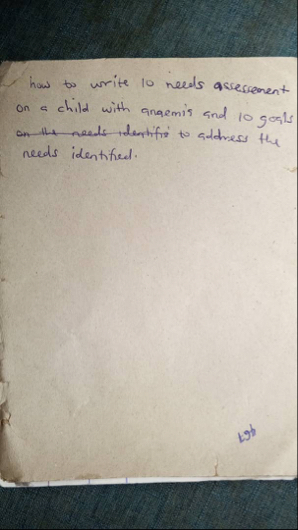 how to write 10 needs assessement
on a child with anaemia and 10 goals
on the needs identifie to address the
needs identified.